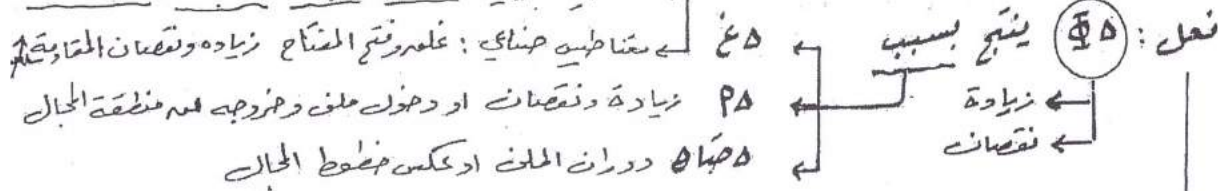 فعل : ΔΦ ينتج بسبب
زيادة
نقصان
Δغ ← مغناطيس صناعي : غلق وفتح المفتاح زيادة ونقصان المقاومة
Δم زيادة ونقصان او دخول ملف وخروجه من منطقة المجال
Δجتا θ دوران الملف او عكس خطوط المجال